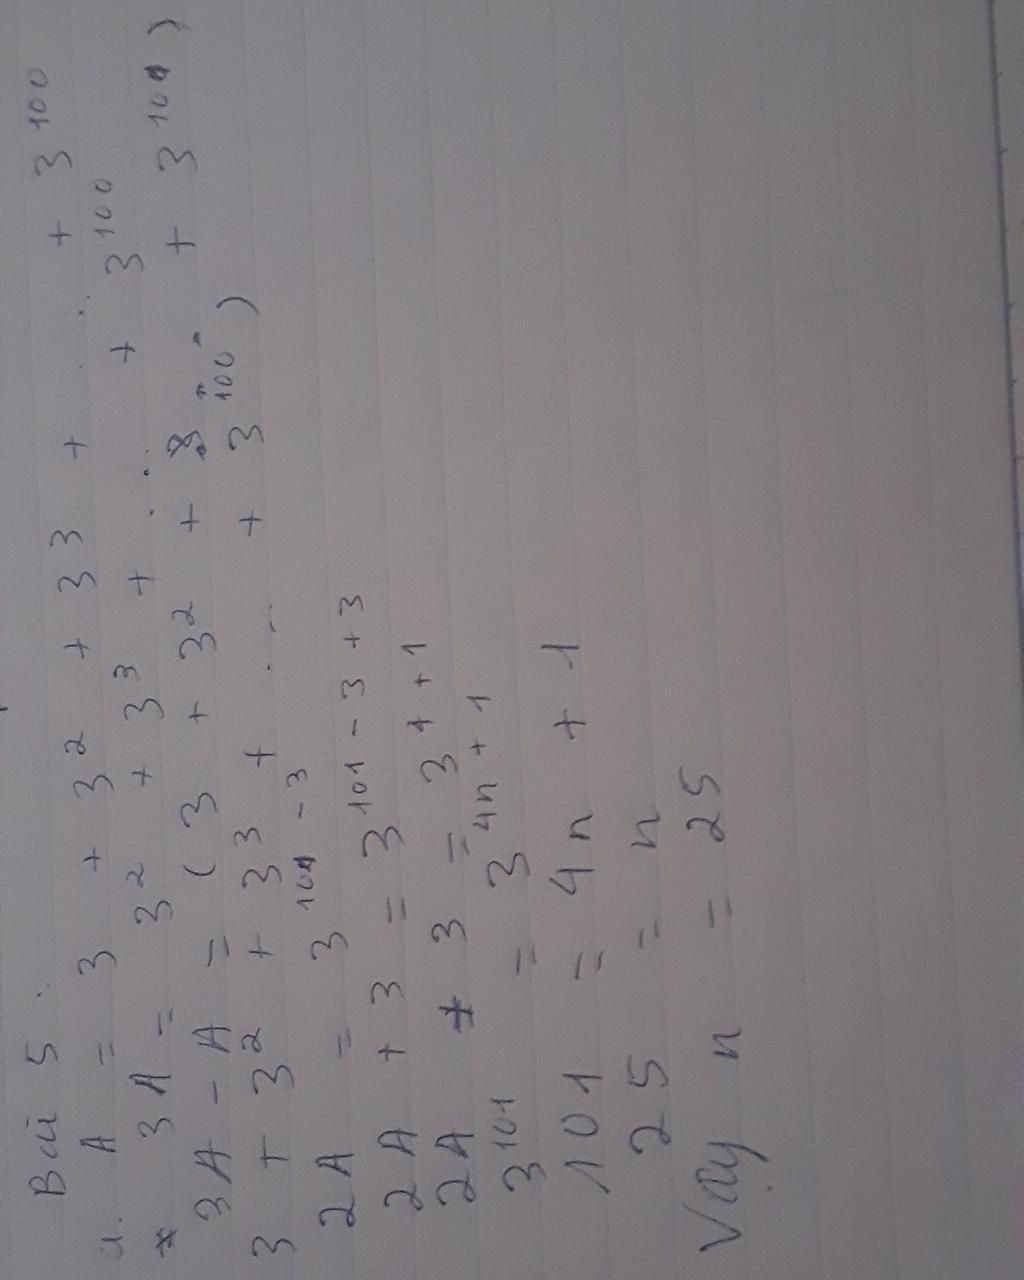 Bài 5.
a. A = 3 + 3² + 3³ + ... + 3¹⁰⁰
* 3A = 3² + 3³ + ... + 3¹⁰⁰ + 3¹⁰¹)
3A - A = (3 + 3² + 3
3 + 3² + 3³ + ... + 3¹⁰⁰)
2A = 3¹⁰¹ - 3
2A + 3 = 3¹⁰¹ - 3 + 3
2A + 3 = 3⁴ + 1
3¹⁰¹ = 3⁴ⁿ⁺¹
101 = 4n + 1
25 = n
Vậy n = 25